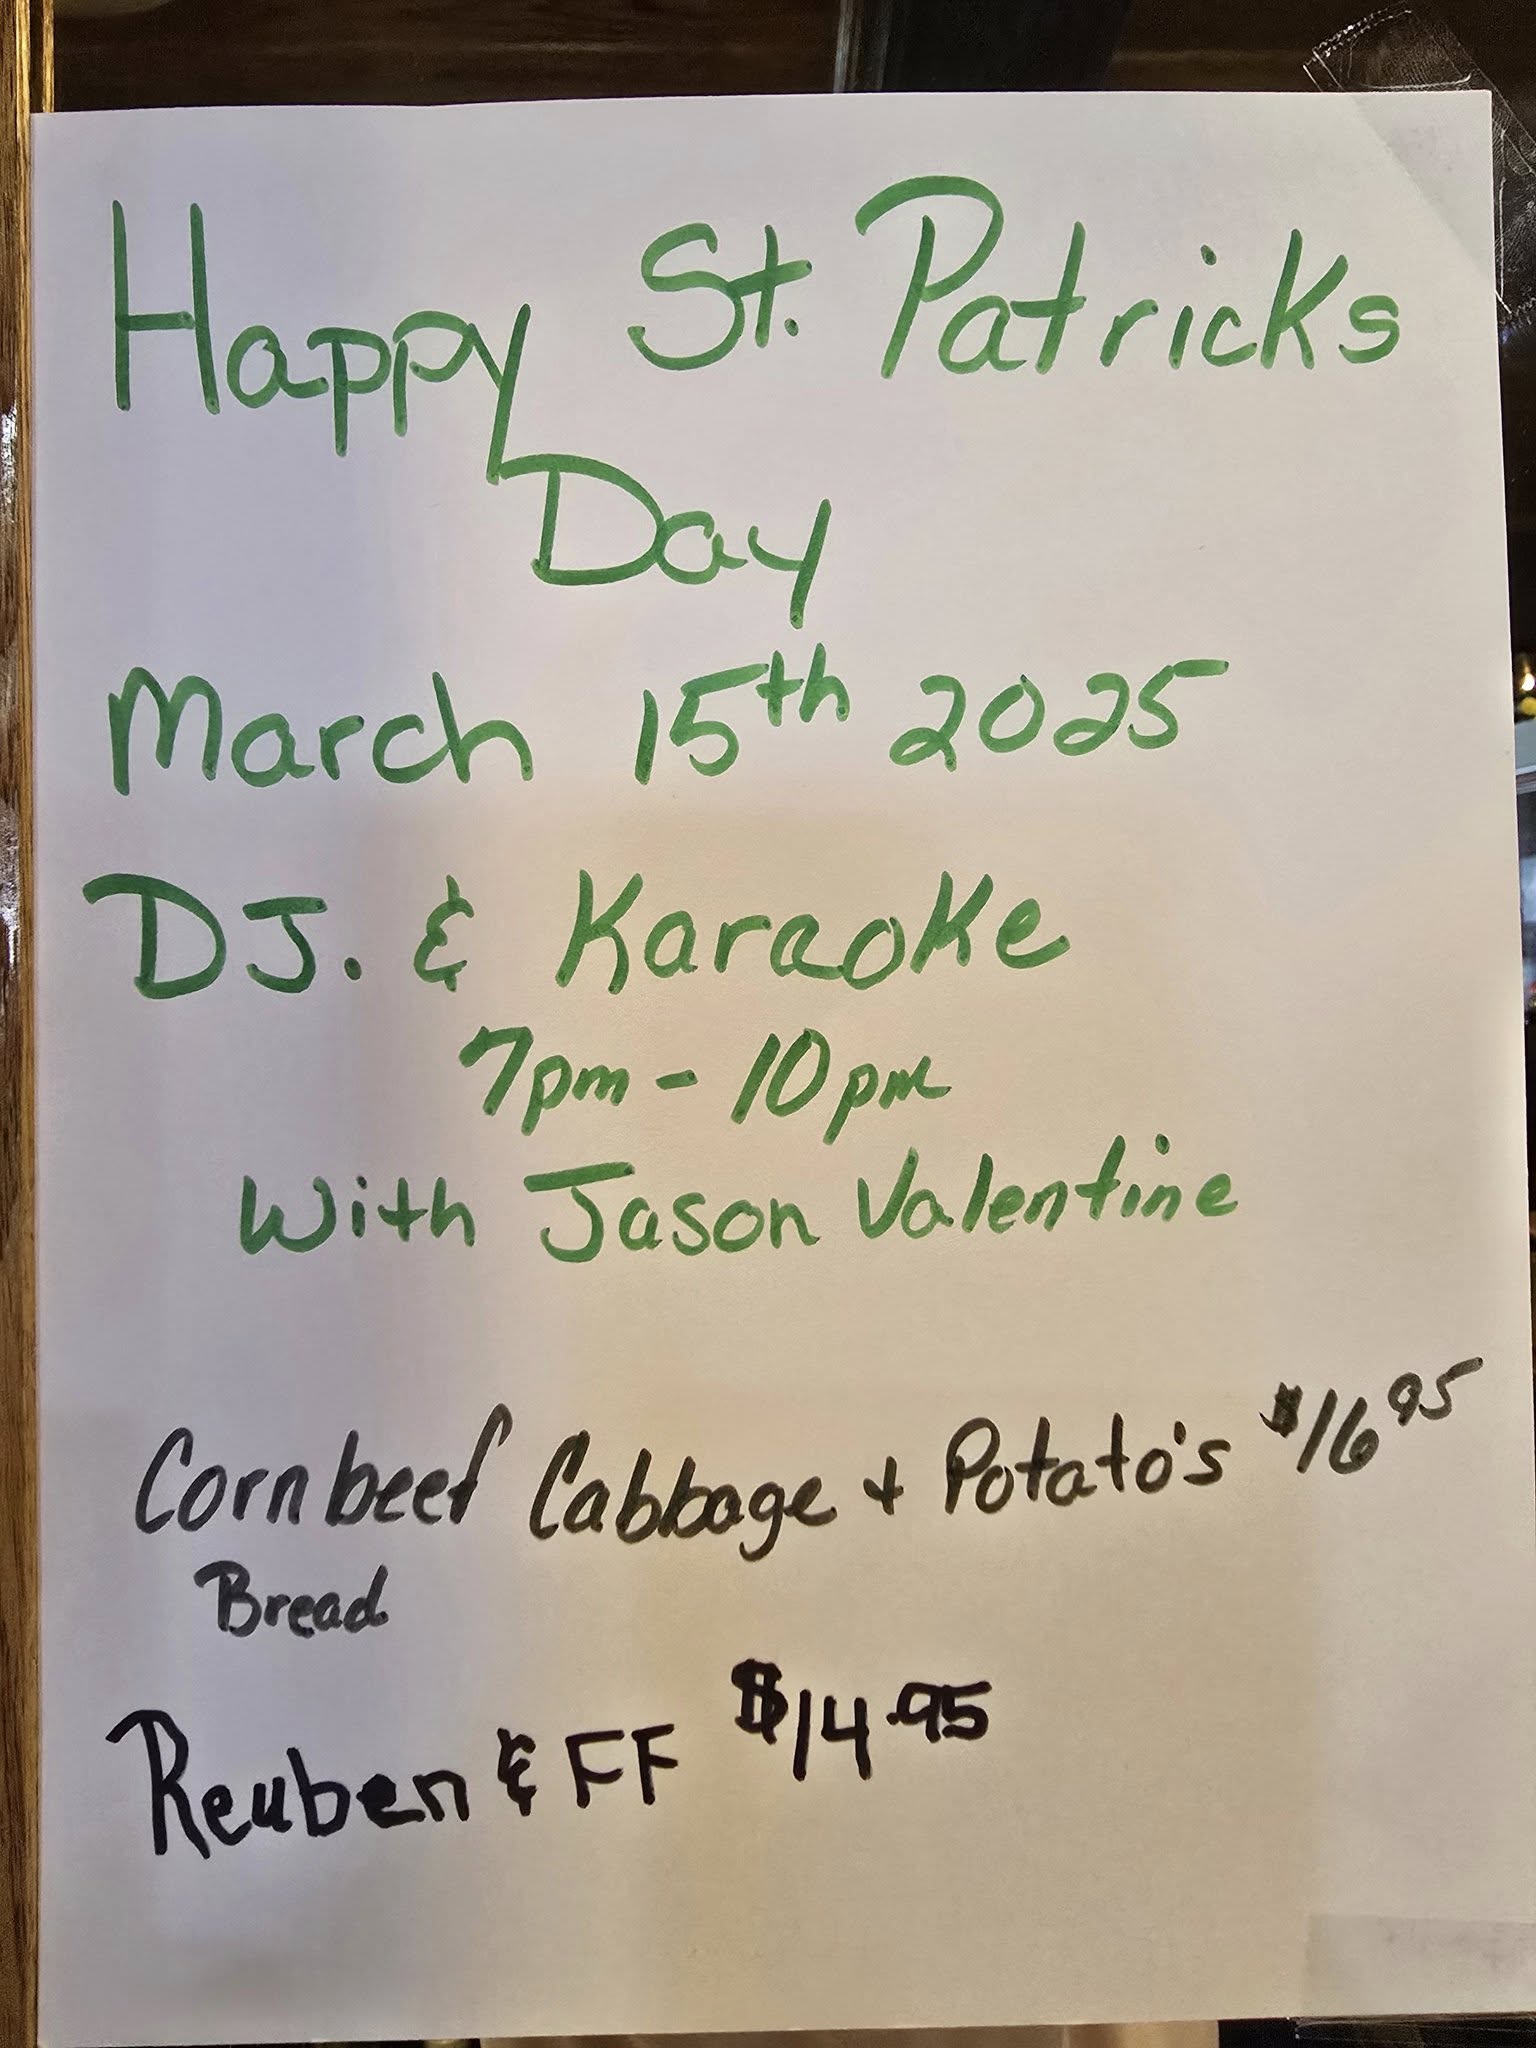 Happy St. Patricks
Day
March 15th 2025
DJ. & Karaoke
7pm - 10pm
With Jason Valentine
Corn beef Cabbage + Potato's $16 95
Bread
Reuben & FF $14.95